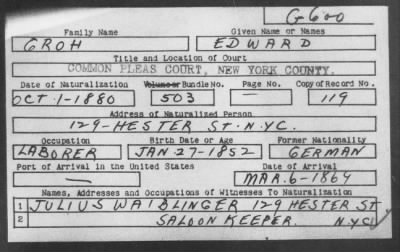 G600
Family Name Given Name or Names
GROH EDWARD
Title and Location of Court
COMMON PLEAS COURT, NEW YORK COUNTY.
Date of Naturalization Volume or Bundle No. Page No. Copy of Record No.
OCT. 1-1880 503 — 119
Address of Naturalized Person
129-HESTER ST. N.Y.C.
Occupation Birth Date or Age Former Nationality
LABORER JAN-27-1852 GERMAN
Port of Arrival in the United States Date of Arrival
— MAR. 6-1864
Names, Addresses and Occupations of Witnesses To Naturalization
1 JULIUS WAIBLINGER 129 HESTER ST
2 SALOON KEEPER. N.Y.C.